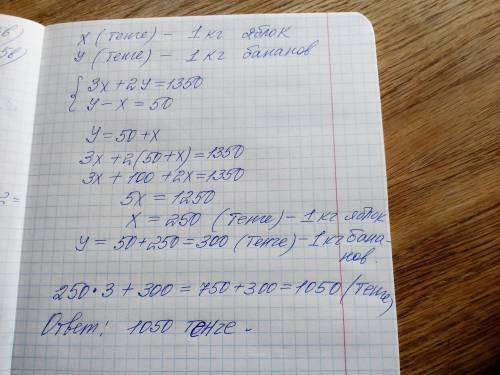 x (тенге) – 1 кг яблок
y (тенге) – 1 кг бананов
{ 3x + 2y = 1350
y – x = 50
y = 50 + x
3x + 2(50 + x) = 1350
3x + 100 + 2x = 1350
5x = 1250
x = 250 (тенге) – 1 кг яблок
y = 50 + 250 = 300 (тенге) – 1 кг бана-
нов.
250 · 3 + 300 = 750 + 300 = 1050 (тенге)
Ответ: 1050 тенге.